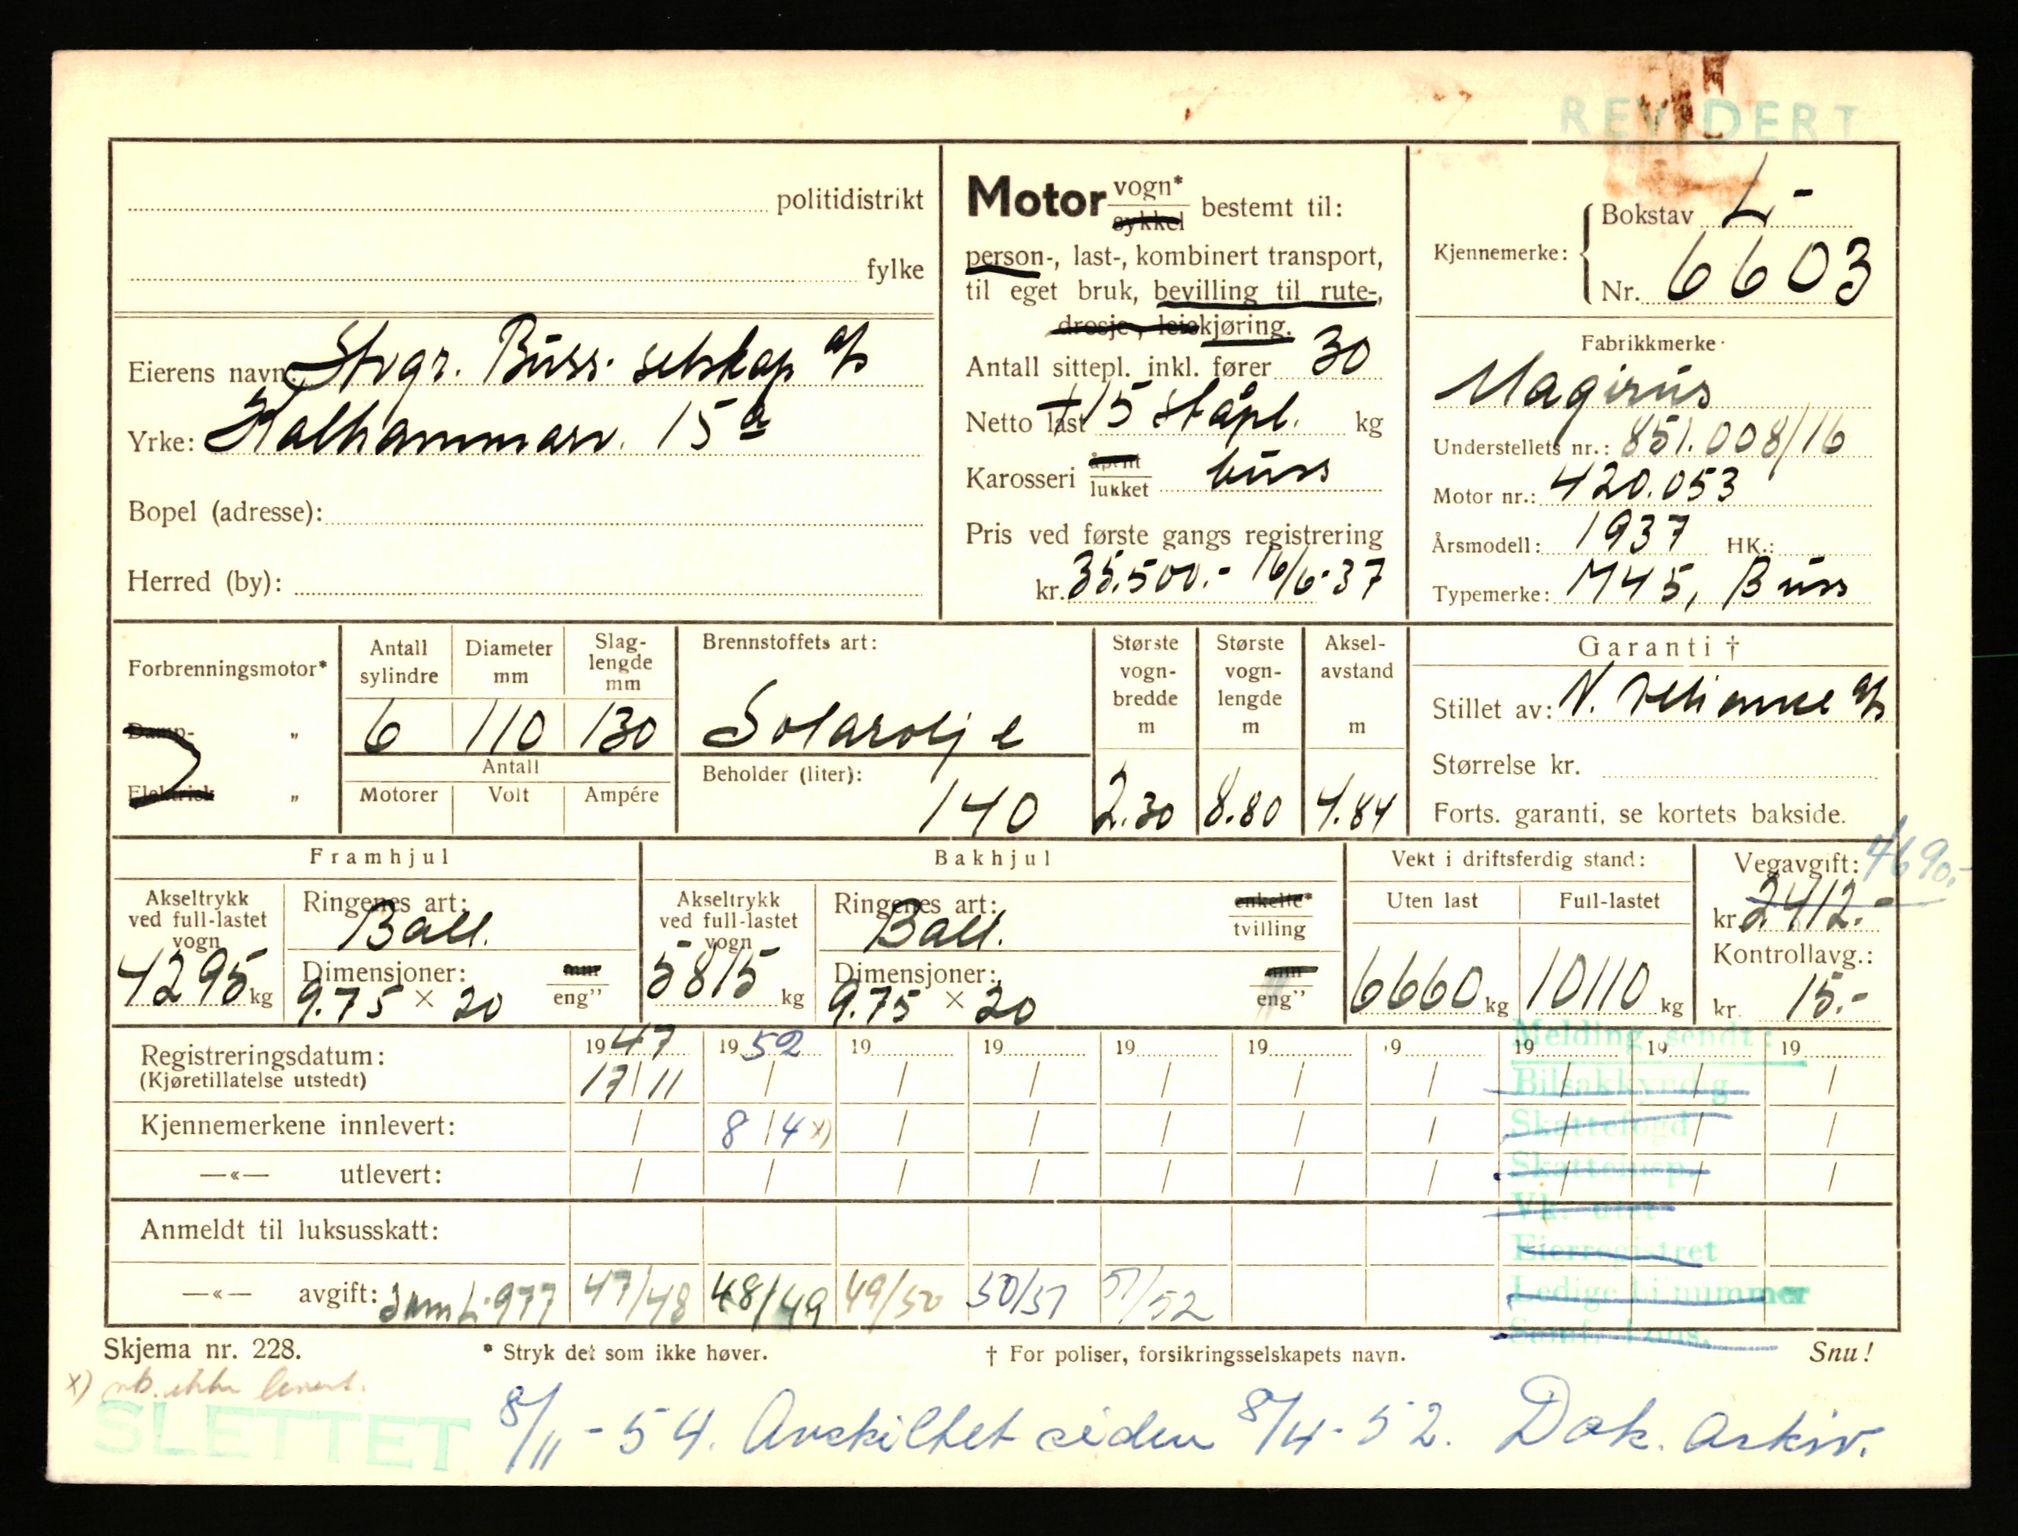 REVIDERT
politidistrikt
fylke
Eierens navn: Stvgr. Buss. selskap a/s
Yrke: Kalhammarv. 15 a
Bopel (adresse):
Herred (by):
Motor vogn* sykkel bestemt til:
person-, last-, kombinert transport,
til eget bruk, bevilling til rute-,
drosje-, leiekjøring.
Antall sittepl. inkl. fører 30
Netto last +15 ståpl. kg
Karosseri åpent lukket buss
Pris ved første gangs registrering
kr. 35.500.- 16/6-37
Kjennemerke: Bokstav L-
Nr. 6603
Fabrikkmerke
Magirus
Understellets nr.: 851.008/16
Motor nr.: 420.053
Årsmodell: 1937 HK.:
Typemerke: M45, Buss
Forbrenningsmotor*
Damp- „
Elektrisk „
Antall sylindre Diameter mm Slag-lengde mm
6 110 130
Antall
Motorer Volt Ampére
Brennstoffets art:
Solarolje
Beholder (liter):
140
Største vogn-bredde m 2.30
Største vogn-lengde m 8.80
Aksel-avstand m 4.84
Garanti †
Stillet av: N. a/s
Størrelse kr.
Forts. garanti, se kortets bakside.
Framhjul
Akseltrykk ved full-lastet vogn
4295 kg
Ringenes art:
Ball.
Dimensjoner: mm eng”
9.75 × 20
Bakhjul
Akseltrykk ved full-lastet vogn
5815 kg
Ringenes art: enkelte* tvilling
Ball.
Dimensjoner: mm eng”
9.75 × 20
Vekt i driftsferdig stand:
Uten last Full-lastet
6660 kg 10110 kg
Vegavgift: 4690.-
kr 2412.-
Kontrollavg.:
kr. 15.-
Registreringsdatum: 1947 1952 19 19 19 19 19 19 19 19
(Kjøretillatelse utstedt) 17/11 / / / / / / / / /
Kjennemerkene innlevert: / 8/4 x) / / / / / / / /
—«— utlevert: / / / / / / / / / /
Anmeldt til luksusskatt:
—«— avgift: Sam L-977 47/48 48/49 49/50 50/51 51/52
Melding sendt:
Bilsakkyndig
Skattefogd
Skatteinsp.
Vk. utst
Eierregistret
Ledige bi nummer
Skjema nr. 228. * Stryk det som ikke høver. † For poliser, forsikringsselskapets navn. Snu!
x) nb. ikke levert.
SLETTET 8/11-54. Avskiltet siden 8/4-52. Dok. arkiv.